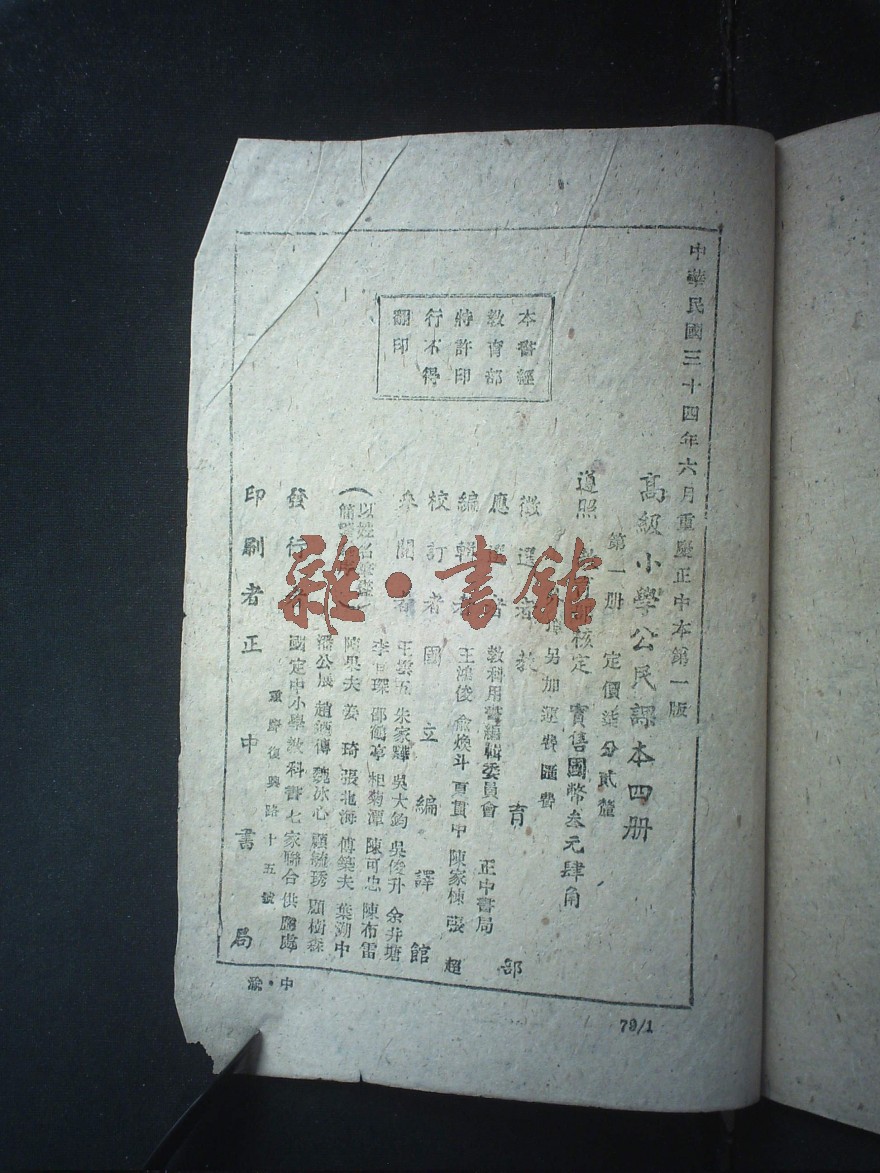 中華民國三十四年六月重慶正中本第一版
高級小學公民課本四册
第一册 定價 分貳釐
遵照 核定 實售國幣叁元肆角
另加運費匯費
徵選者教育部
應 者 教科用書編輯委員會 正中書局
編輯者 王鴻俊 俞煥斗 夏貫中 陳家棟 張超
校訂者 國立編譯館
參閱者 王雲五 朱家驊 吳大鈞 吳俊升 余井塘
(以姓名筆畫
簡
李 琛 邵鶴亭 相菊潭 陳可忠 陳布雷
陳果夫 姜琦 張北海 傅築夫 葉溯中
潘公展 趙迺傳 魏冰心 顧毓琇 顧樹森
發行 國定中小學教科書七家聯合供應處
重慶復興路十五號
印刷者正中書局
本書經
教育部
特許印
行不得
翻印
中·渝
79/1
雜·書館